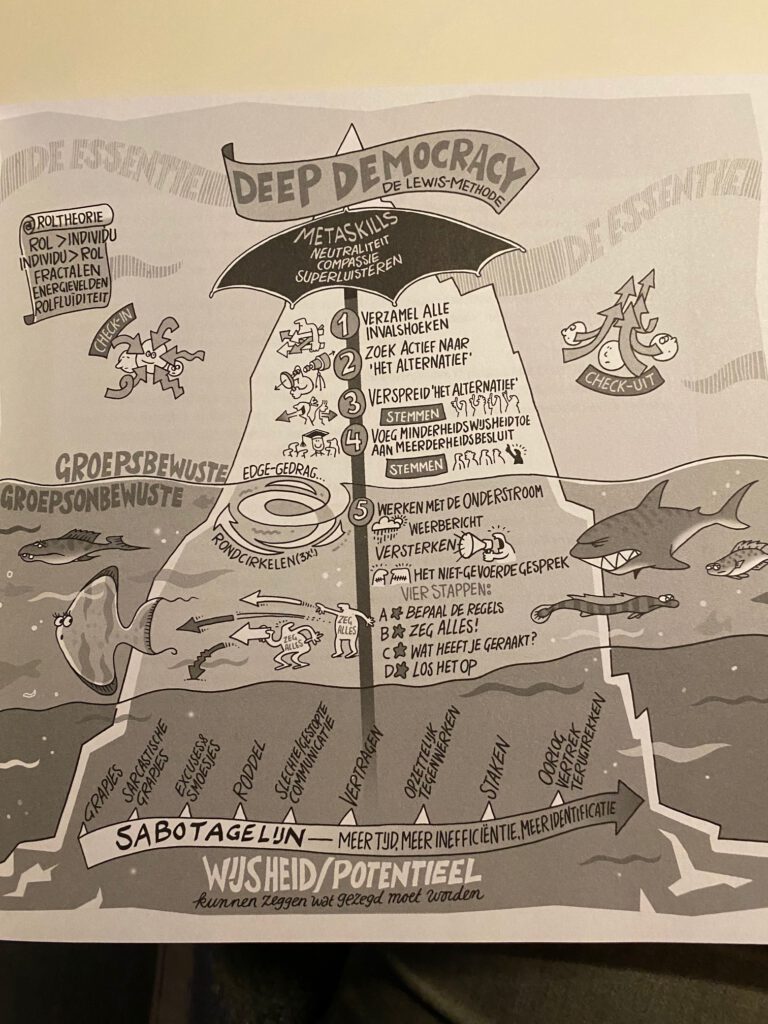 DE ESSENTIE
DEEP DEMOCRACY
DE LEWIS-METHODE
DE ESSENTIE
@ROLTHEORIE
ROL > INDIVIDU
INDIVIDU > ROL
FRACTALEN
ENERGIEVELDEN
ROLFLUIDITEIT
METASKILLS
NEUTRALITEIT
COMPASSIE
SUPERLUISTEREN
CHECK-IN
CHECK-UIT
1 VERZAMEL ALLE
INVALSHOEKEN
2 ZOEK ACTIEF NAAR
'HET ALTERNATIEF'
3 VERSPREID 'HET ALTERNATIEF'
STEMMEN
4 VOEG MINDERHEIDSWIJSHEID TOE
AAN MEERDERHEIDSBESLUIT
STEMMEN
GROEPSBEWUSTE
GROEPSONBEWUSTE
EDGE-GEDRAG...
RONDCIRKELEN (3X!)
5 WERKEN MET DE ONDERSTROOM
WEERBERICHT
VERSTERKEN
HET NIET-GEVOERDE GESPREK
VIER STAPPEN:
A BEPAAL DE REGELS
B ZEG ALLES!
C WAT HEEFT JE GERAAKT?
D LOS HET OP
ZEG
ALLES
ZEG
ALLES
GRAPJES
SARCASTISCHE
GRAPJES
EXCUSES &
SMOESJES
RODDEL
SLECHTE/GESTOPTE
COMMUNICATIE
VERTRAGEN
OPZETTELIJK
TEGENWERKEN
STAKEN
OORLOG
VERTREK
TERUGTREKKEN
SABOTAGELIJN — MEER TIJD, MEER INEFFICIËNTIE, MEER IDENTIFICATIE
WIJSHEID/POTENTIEEL
kunnen zeggen wat gezegd moet worden